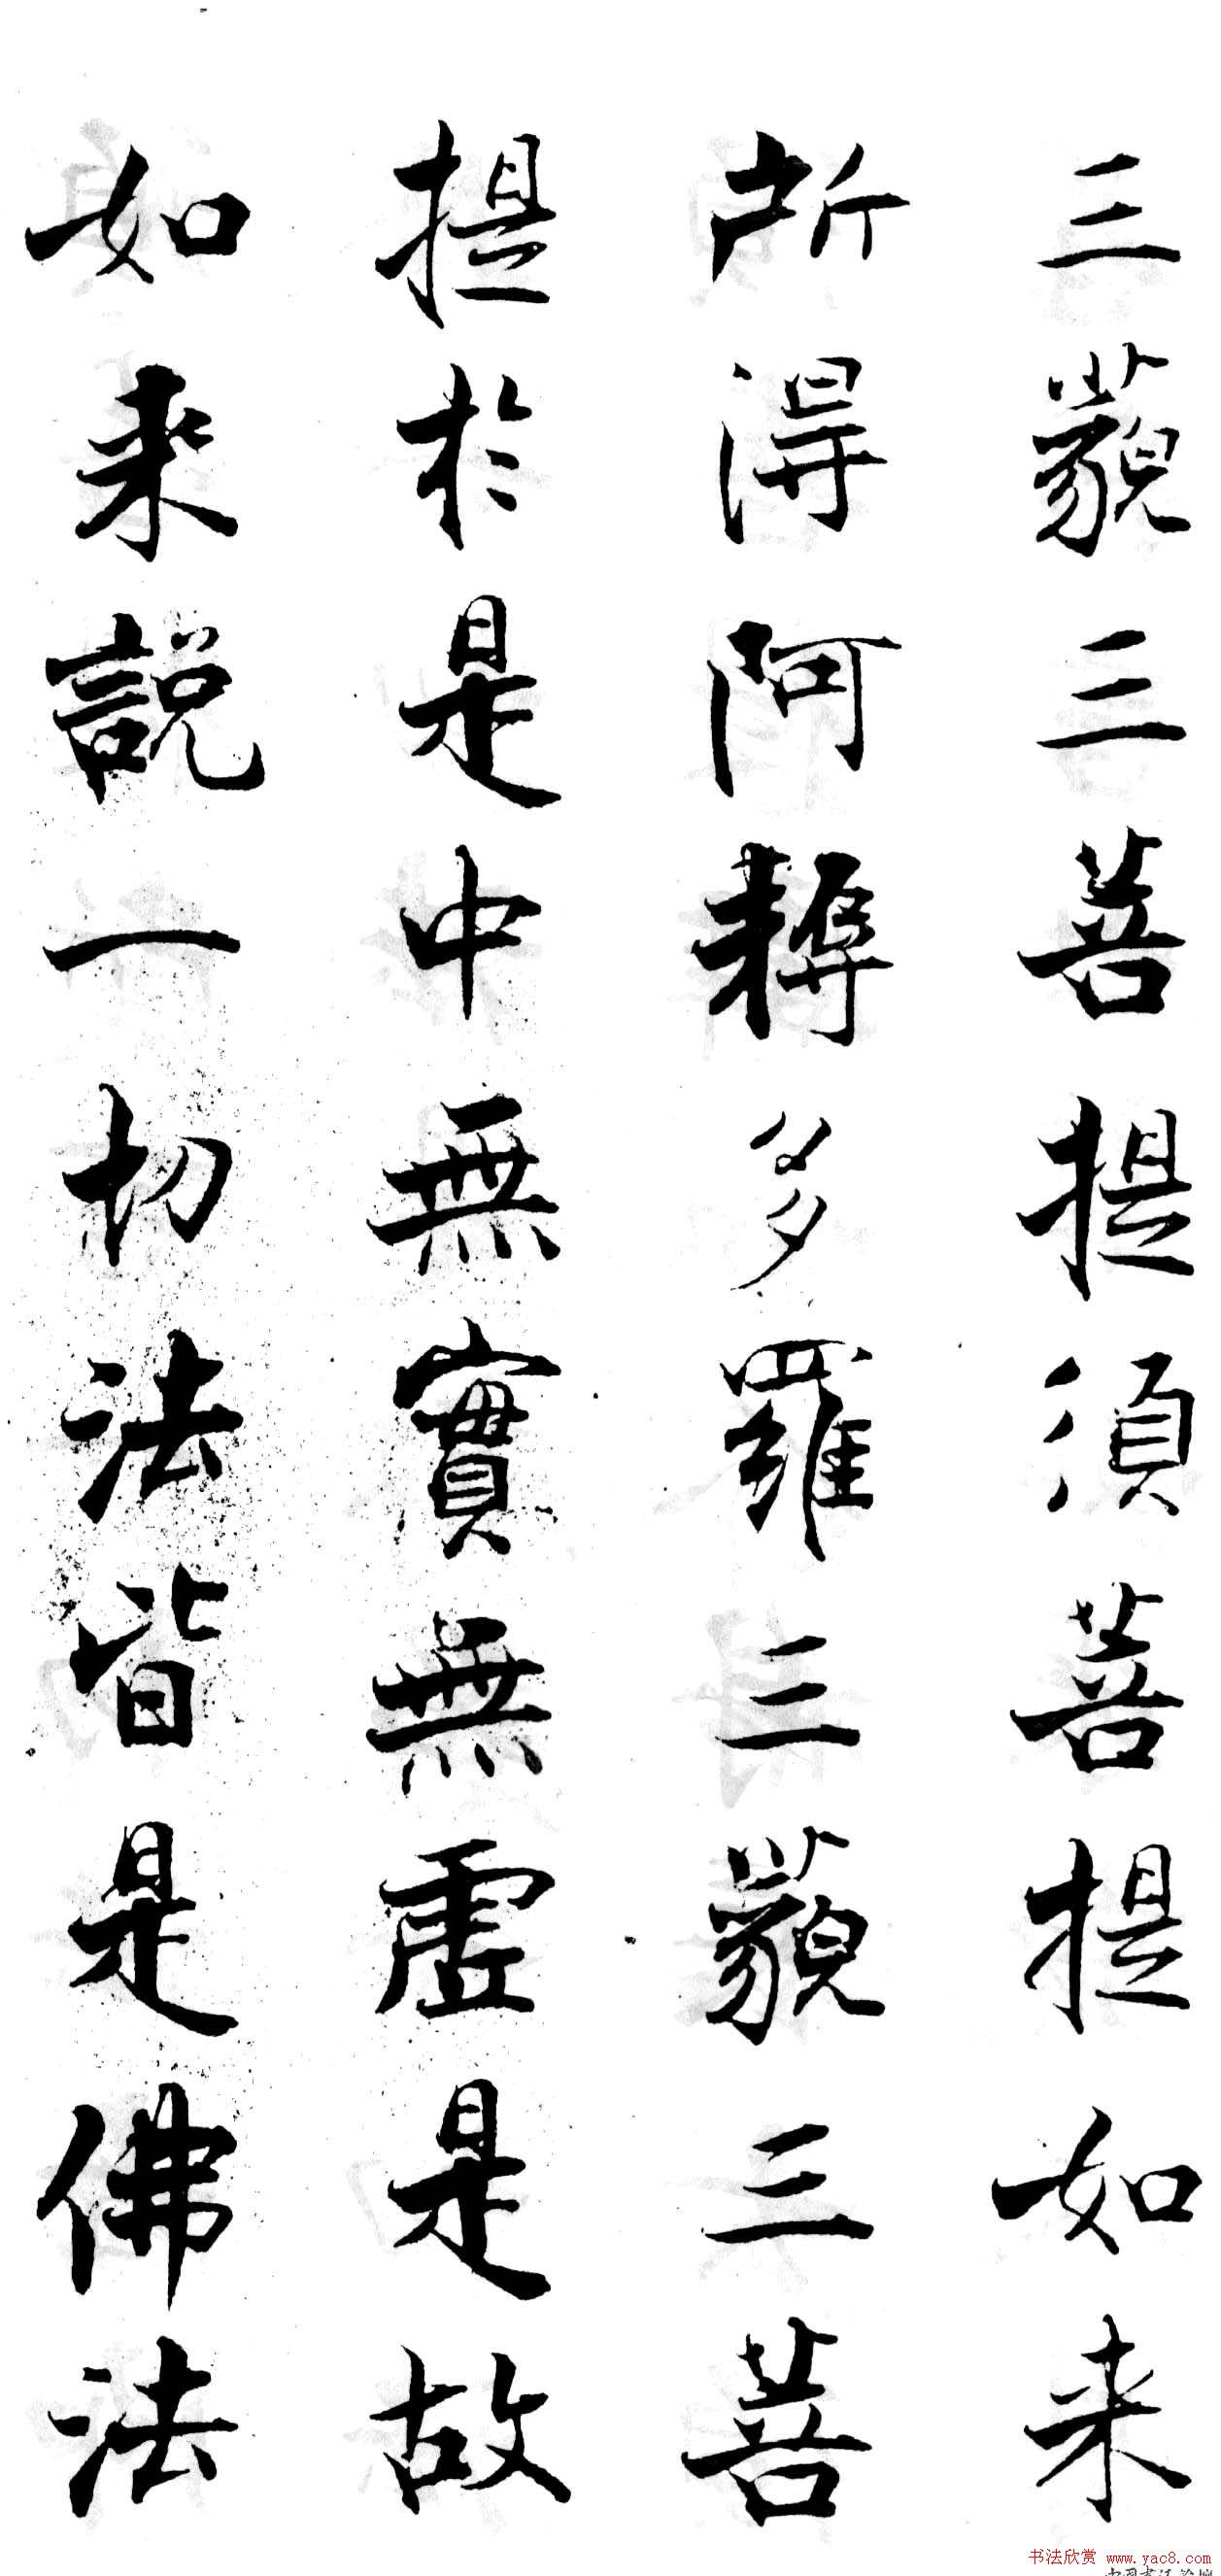 三藐三菩提須菩提如来
所得阿耨多羅三藐三菩
提於是中無實無虛是故
如来說一切法皆是佛法
书法欣赏 www.yac8.com